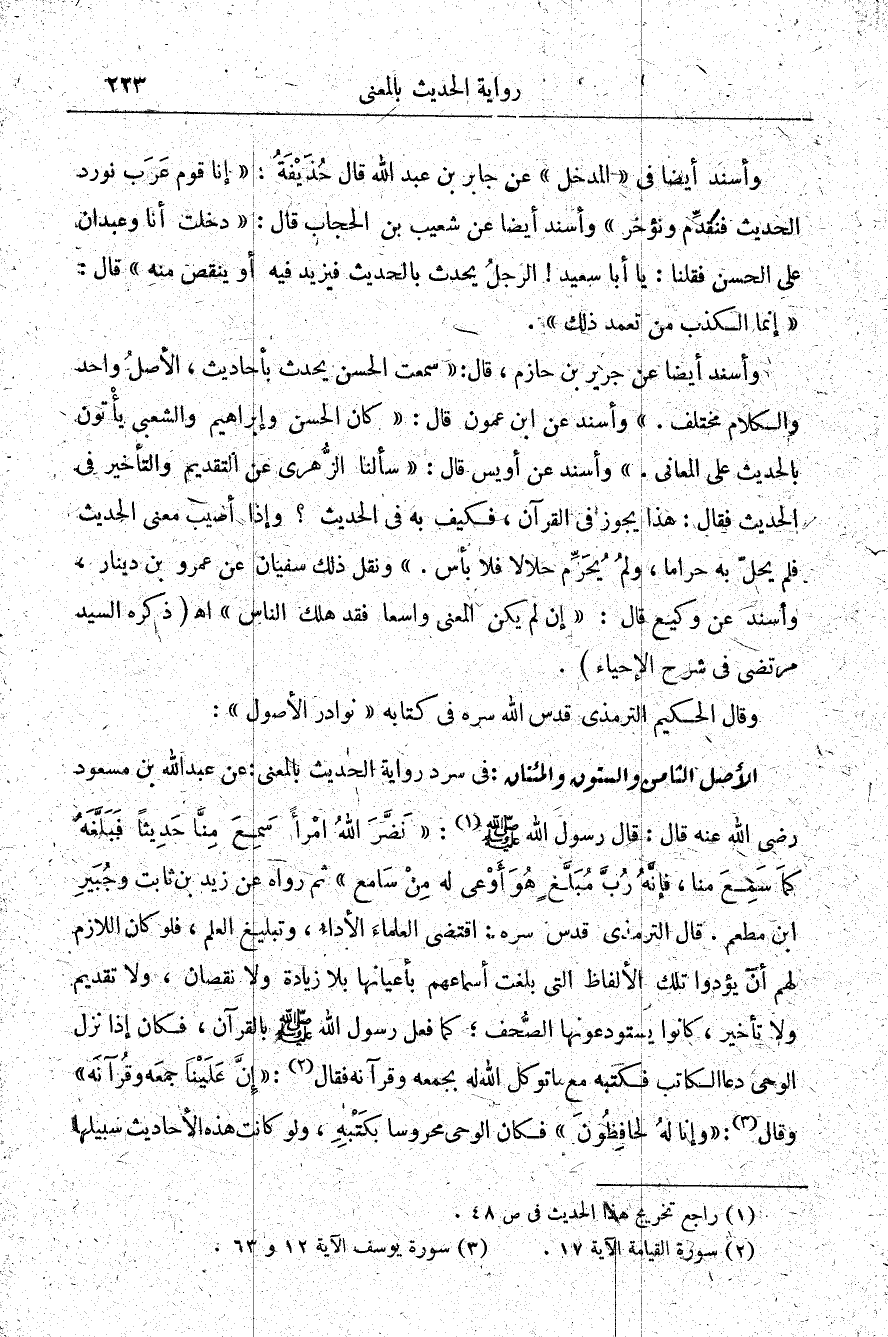 رواية الحديث بالمعنى ٢٢٣
وأسند أيضا فى « المدخل » عن جابر بن عبد الله قال حُذَيْفَةُ : « إنا قوم عَرَب نورد
الحديث فنُقدِّم ونؤخر » وأسند أيضا عن شعيب بن الحجاب قال : « دخلت أنا وعبدان
على الحسن فقلنا : يا أبا سعيد ! الرجلُ يحدث بالحديث فيزيد فيه أو ينقص منه » قال :
« إنما الكذب من تعمد ذلك » .
وأسند أيضا عن جرير بن حازم ، قال: « سمعت الحسن يحدث بأحاديث ، الأصلُ واحد
والكلام مختلف . » وأسند عن ابن عمون قال : « كان الحسن وإبراهيم والشعبي يأْتون
بالحديث على المعانى . » وأسند عن أويس قال : « سألنا الزُّهرى عن التقديم والتأخير فى
الحديث فقال : هذا يجوز فى القرآن ، فكيف به فى الحديث ؟ وإذا أصيب معنى الحديث
فلم يحلّ به حراما ، ولمْ يُحَرِّم حلالا فلا بأس . » ونقل ذلك سفيان عن عمرو بن دينار ،
وأسند عن وكيع قال : « إن لم يكن المعنى واسعا فقد هلك الناس » اهـ ( ذكره السيد
مرتضى فى شرح الإحياء ) .
وقال الحكيم الترمذى قدس الله سره فى كتابه « نوادر الأصول » :
الأصل الثامن والستون والمئتان : فى سرد رواية الحديث بالمعنى : عن عبد الله بن مسعود
رضى الله عنه قال : قال رسول الله ﷺ (١) : « نَضَّرَ اللهُ امْرأً سَمِعَ مِنَّا حَدِيثاً فَبَلَّغَهُ
كَمَا سَمِعَ منا ، فإنَّهُ رُبَّ مُبَلَّغٍ هُوَ أَوْعى له مِنْ سَامع » ثم رواه عن زيد بن ثابت وجُبَيرِ
ابن مطعم . قال الترمذى قدس سره : اقتضى العلماءَ الأداء ، وتبليغ العلم ، فلو كان اللازم
لهم أنْ يؤدوا تلك الألفاظ التى بلغت أسماعهم بأعيانها بلا زيادة ولا نقصان ، ولا تقديم
ولا تأخير ، كانوا يستودعونها الصُّحف ؛ كما فعل رسول الله ﷺ بالقرآن ، فكان إذا نزل
الوحى دعا الكاتب فكتبه مع ما توكل الله له بجمعه وقرآنه فقال (٢) : « إنَّ عَلَيْنَا جمعَه وقُرآنَه »
وقال (٣) : « وإنا لهُ لحافِظُونَ » فكان الوحى محروسا بكَتْبِهِ ، ولو كانت هذه الأحاديث سبيلها
(١) راجع تخريج هذا الحديث فى ص ٤٨ .
(٢) سورة القيامة الآية ١٧ . (٣) سورة يوسف الآية ١٢ و ٦٣ .